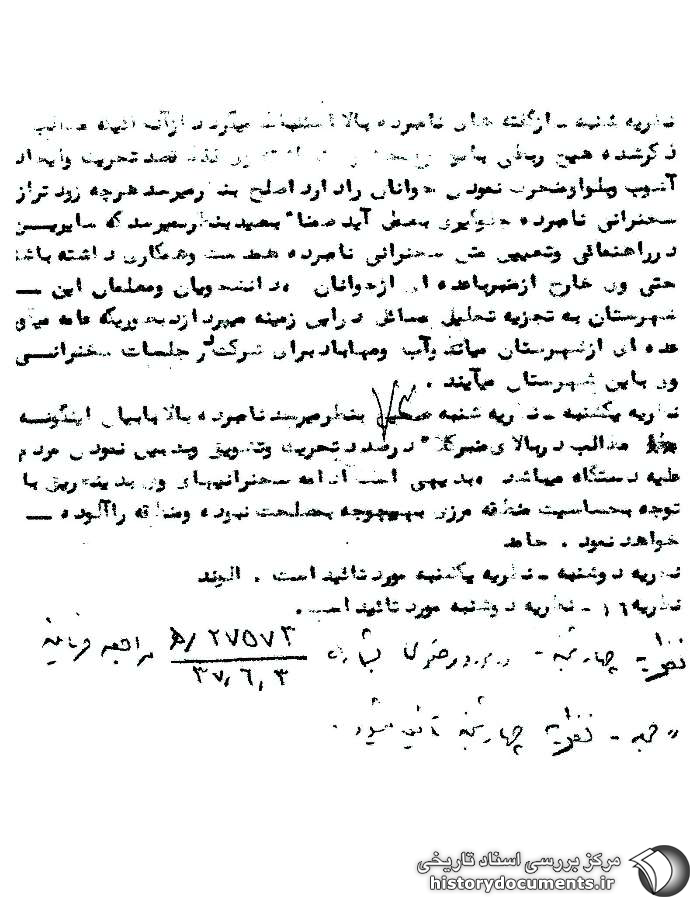 نظریه شنبه ـ ازگفته های نامبرده بالا استنباط میگردد ازآنجائیکه مطالب
ذکرشده هیچ ربطی با موضوع نداشته وی فقط قصد تحریک وایجاد
آشوب وبلوا ومنحرف نمودن جوانان را دارد اصلح بنظرمیرسد هرچه زودتر از
سخنرانی نامبرده جلوگیری بعمل آید ضمنا" بعید بنظرنمیرسد که سایرین
درراهنمائی وتعیین متن سخنرانی نامبرده همدست وهمکاری داشته باشند
حتی وی خارج ازمنبرباعده ای ازجوانان ، دانشجویان ومعلمان این ـ
شهرستان به تجزیه تحلیل مسائل دراین زمینه میپردازد بطوریکه
عده ای ازشهرستان میاندوآب ومهاباد برای شرکت در جلسات سخنرانی
وی باین شهرستان میآیند .
نظریه یکشنبه ـ نظریه شنبه صحیح بنظرمیرسد نامبرده بالا بابیان اینگونه
مطالب دربالای منبرکلا" درصدد تحریک وتشویق وبدبین نمودن مردم
علیه دستگاه میباشد ، بدیهی است ادامه سخنرانیهای وی بدینطریق با
توجه بحساسیت منطقه مرزی بهیچوجه بمصلحت نبوده ومنطقه راآلوده ـ
خواهد نمود . حامد
نظریه دوشنبه ـ نظریه یکشنبه مورد تائید است . الوند
نظریه ۱٦ ـ نظریه دوشنبه مورد تائید است .
نظریه چهارشنبه ـ بشماره ۲۷۵۷۳/ﻫ مراجعه فرمائید
۳۷,٦,۳
" جمعه ـ نظریه چهارشنبه تأئید میشود .
مرکز بررسی اسناد تاریخی
historydocuments.ir